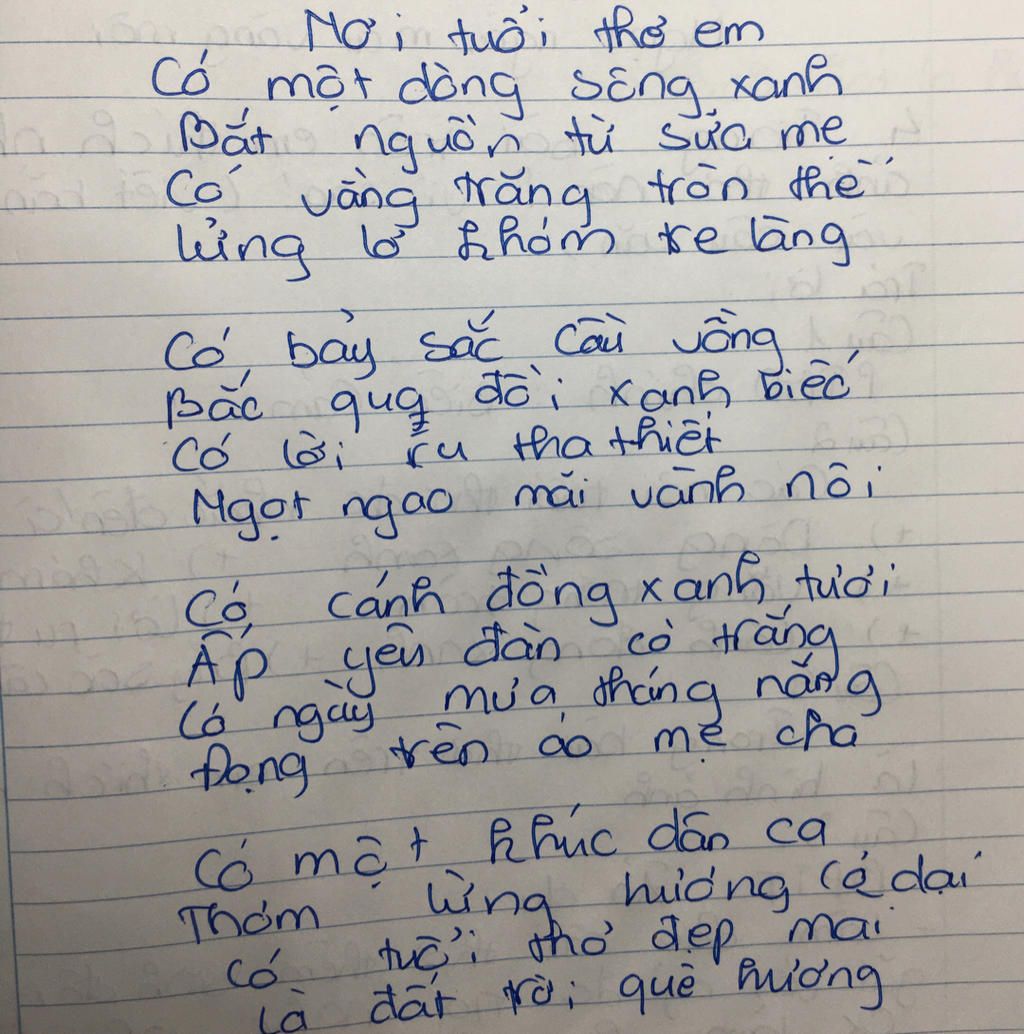 Nơi tuổi thơ em
Có một dòng sông xanh
Bắt nguồn từ sữa mẹ
Có vầng trăng tròn thế
Lửng lơ khóm tre làng
Có bảy sắc cầu vồng
Bắc qua đồi xanh biếc
Có lời ru tha thiết
Ngọt ngao mãi vành nôi
Có cánh đồng xanh tươi
Ấp yêu đàn cò trắng
Có ngày mưa tháng nắng
Đọng trên áo mẹ cha
Có một khúc dân ca
Thơm lừng hương cỏ dại
Có tuổi thơ đẹp mãi
Là đất trời quê hương